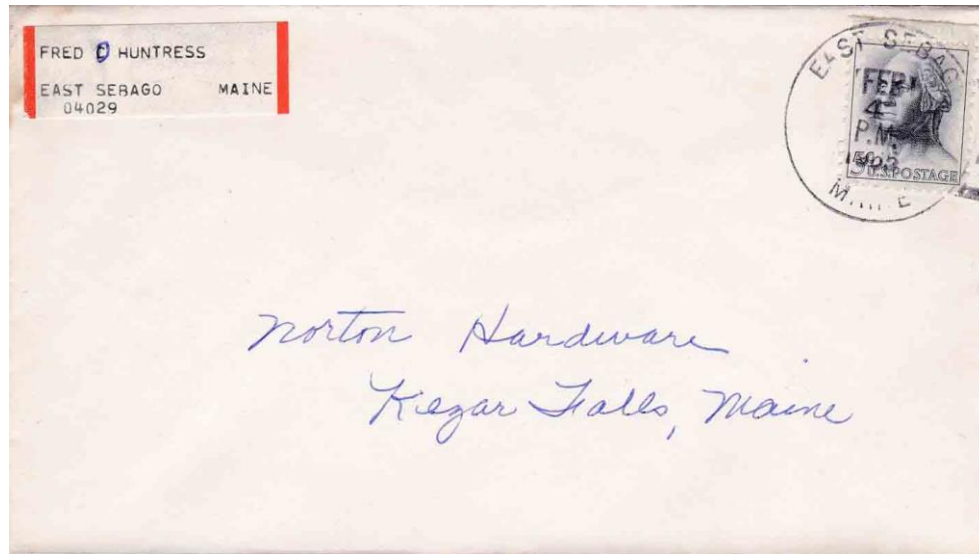 FRED C HUNTRESS
EAST SEBAGO MAINE
04029
EAST SEBAGO
FEB
4
P.M.
MAINE
5¢ U.S. POSTAGE
Norton Hardware
Kezar Falls, Maine